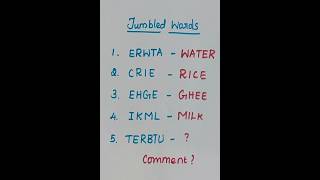 Jumbled Words
1. ERWTA - WATER
2. CRIE - RICE
3. EHGE - GHEE
4. IKML - MILK
5. TERBTU - ?
Comment?